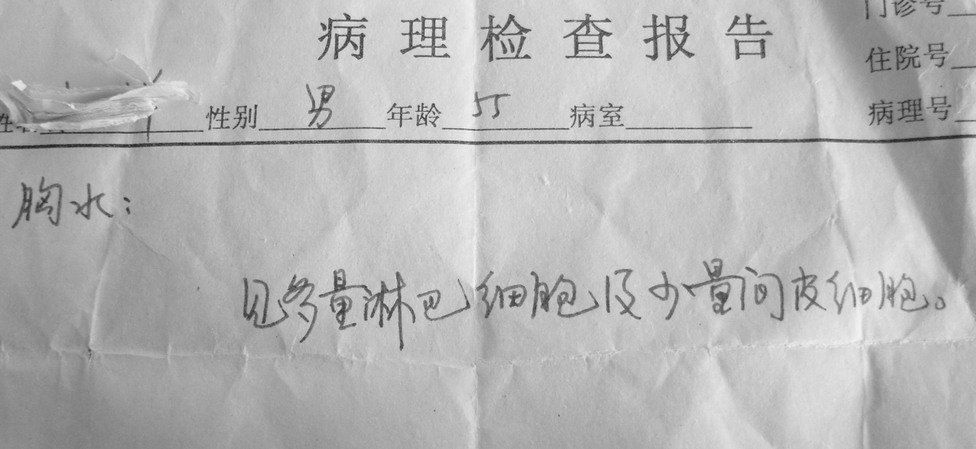 病理检查报告
门诊号
住院号
性别 男 年龄 55 病室 病理号
胸水：
见多量淋巴细胞及少量间皮细胞。